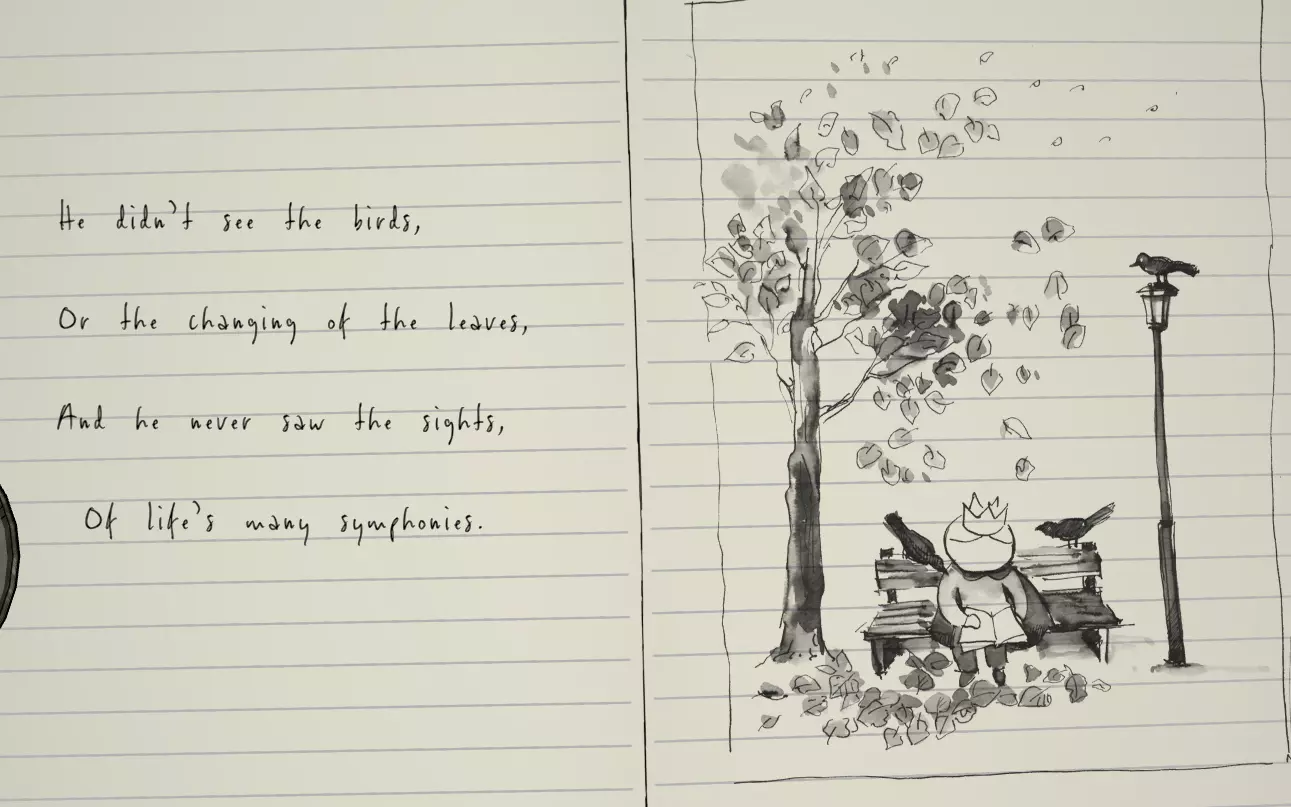 He didn't see the birds,
Or the changing of the leaves,
And he never saw the sights,
Of life's many symphonies.